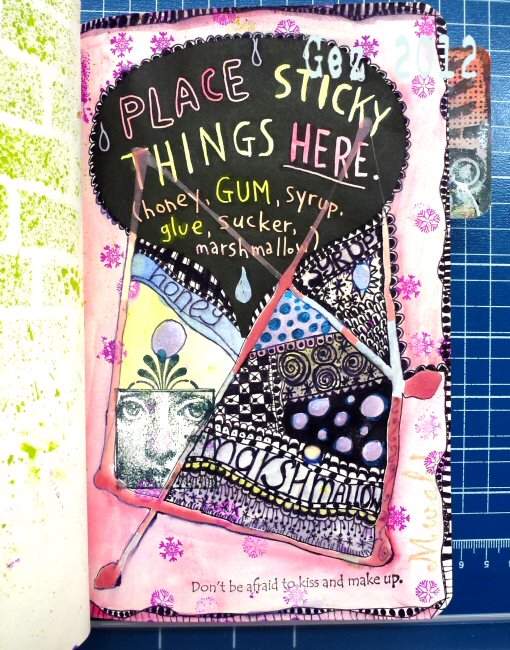 Gez 2012
PLACE STICKY
THINGS HERE.
(honey, GUM, syrup.
glue, sucker,
marshmallow)
SYRUP
honey
marshmallow
Don't be afraid to kiss and make up.
Mwah!